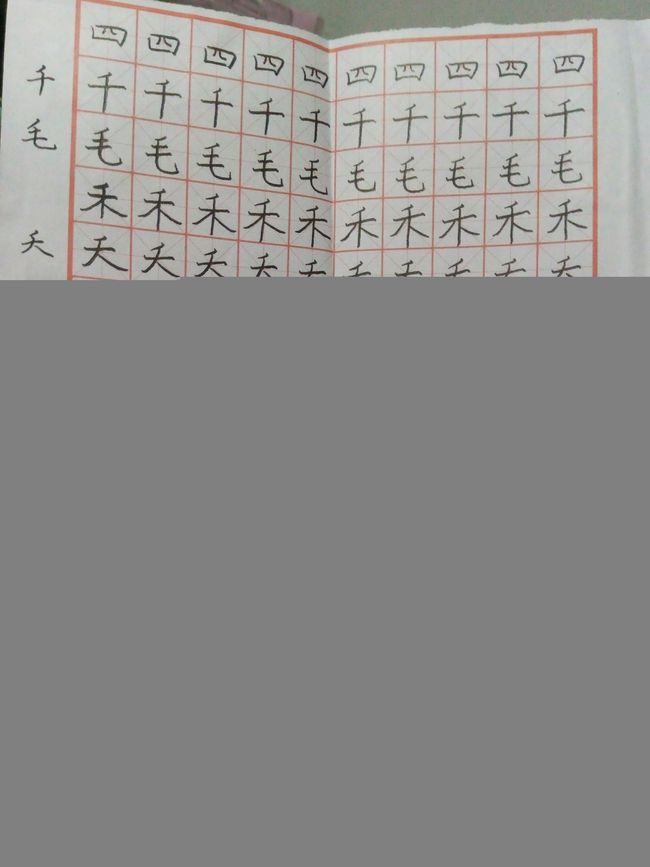 四四四四四四四四四四
千 千千千千千千千千千千
毛 毛毛毛毛毛毛毛毛毛毛
禾禾禾禾禾禾禾禾禾禾
夭 夭夭夭